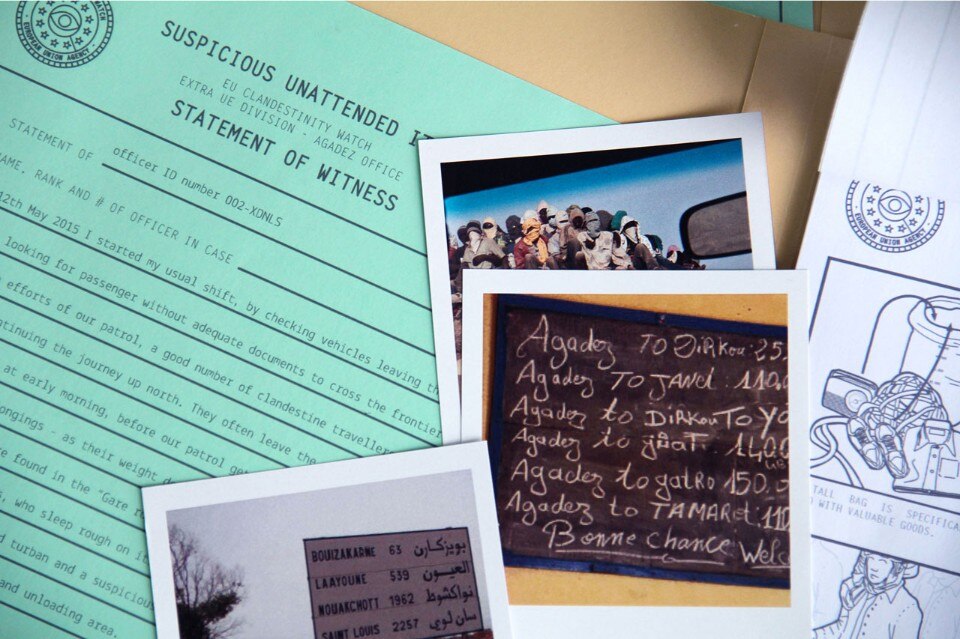 WATCH
EUROPEAN UNION AGENCY
SUSPICIOUS UNATTENDED
EU CLANDESTINITY WATCH
EXTRA UE DIVISION - AGADEZ OFFICE
STATEMENT OF WITNESS
STATEMENT OF officer ID number 002-XDNLS
NAME, RANK AND # OF OFFICER IN CASE
12th May 2015 I started my usual shift, by checking vehicles leaving
looking for passenger without adequate documents to cross the frontier
efforts of our patrol, a good number of clandestine travellers
continuing the journey up north. They often leave the
at early morning, before our patrol
belongings - as their weight
found in the "Gare
, who sleep rough on
turban and a suspicious
and unloading area.
Agadez TO DiRKou 25
Agadez TO JANet 110.0
Agadez to DiRKou To
Agadez to 140.0
Agadez to gatRo 150.0
Agadez to TAMARet 110
Bonne chance Welc
BOUIZAKARNE 63 بويزكارن
LAAYOUNE 539 العيون
NOUAKCHOTT 1962 نواكشوط
SAINT LOUIS 2257 سان لوي
EUROPEAN UNION AGENCY
TALL BAG IS SPECIFICA
WITH VALUABLE GOODS.